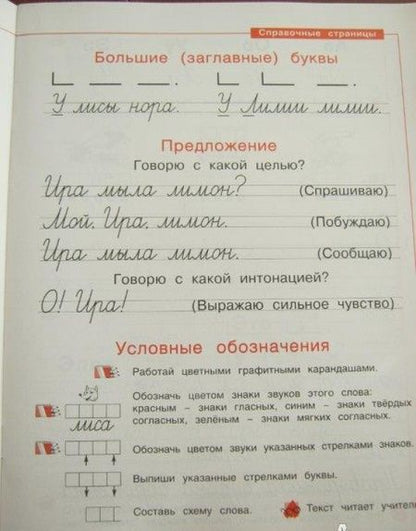 Справочные страницы
Большие (заглавные) буквы
У лисы нора. У Лилии лилии.
Предложение
Говорю с какой целью?
Ира мыла лимон? (Спрашиваю)
Мой, Ира, лимон. (Побуждаю)
Ира мыла лимон. (Сообщаю)
Говорю с какой интонацией?
О! Ира! (Выражаю сильное чувство)
Условные обозначения
Работай цветными графитными карандашами.
Обозначь цветом знаки звуков этого слова:
красным – знаки гласных, синим – знаки твёрдых
согласных, зелёным – знаки мягких согласных.
лиса
Обозначь цветом звуки указанных стрелками знаков.
Выпиши указанные стрелками буквы.
Составь схему слова. Текст читает